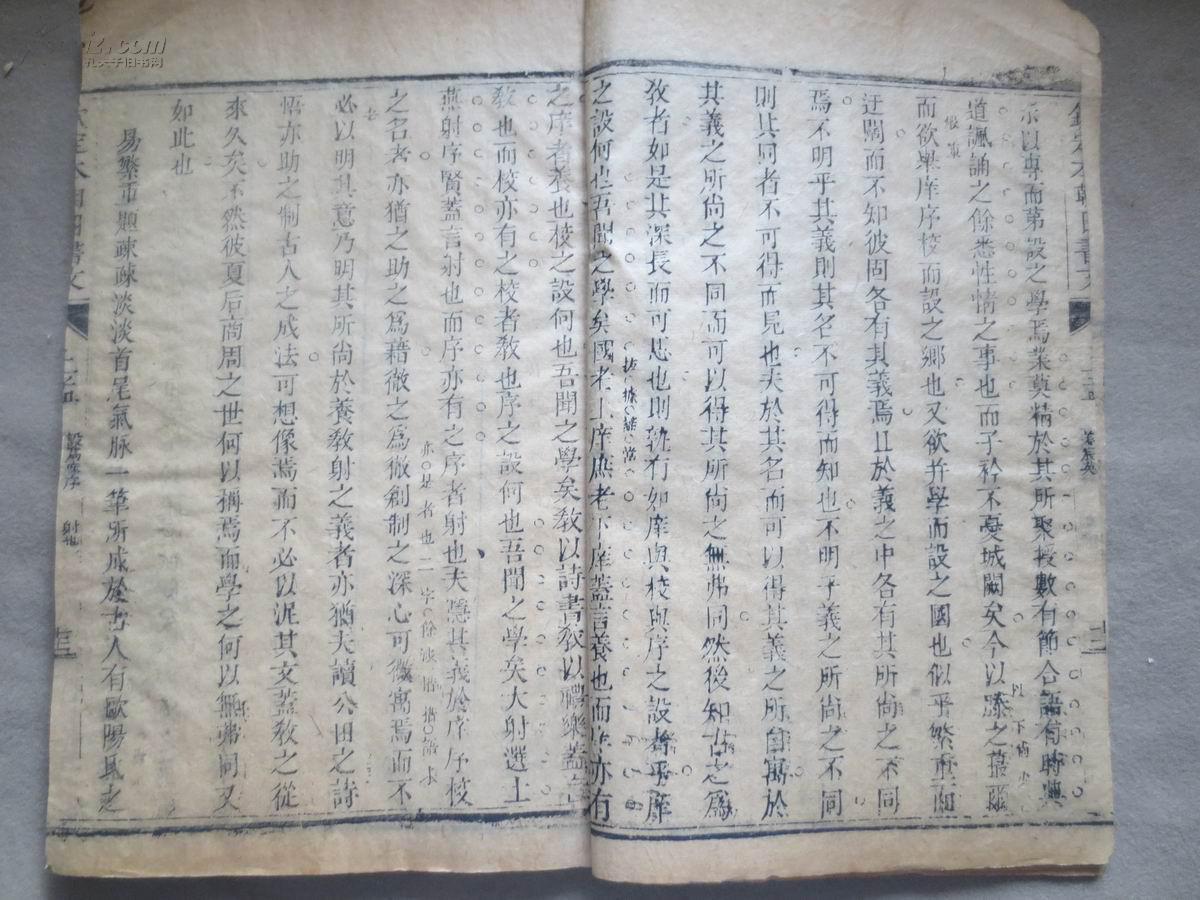 示以專而第設之學焉業莫精於其所聚授數有節合語有時與
道諷誦之餘悉性情之事也而子衿不憂城闕矣今以滕之蕞爾
而欲舉庠序校而設之鄉也又欲并學而設之國也似乎繁重而
迂闊而不知彼固各有其義焉且於義之中各有其所尚之不同
焉不明乎其義則其名不可得而知也不明乎義之所尚之不同
則其同者不可得而見也夫於其名而可以得其義之所自寓於
其義之所尚之不同而可以得其所尚之無弗同然後知古之爲
教者如是其深長而可思也則孰有如庠與校與序之設者乎庠
之設何也吾聞之學矣國老上庠庶老下庠蓋言養也而庠亦有
之庠者養也校之設何也吾聞之學矣教以詩書教以禮樂蓋言
教也而校亦有之校者教也序之設何也吾聞之學矣大射選士
燕射序賢蓋言射也而序亦有之序者射也夫隱其義於庠序校
之名者亦猶之助之爲藉徹之爲徹創制之深心可微寓焉而不
必以明其意乃明其所尚於養教射之義者亦猶夫讀公田之詩
悟亦助之制古人之成法可想像焉而不必以泥其文蓋教之從
來久矣不然彼夏后商周之世何以稱焉而學之何以無弗同又
如此也
易繁重題疎疎淡淡首尾氣脉一筆所成於古人有歐陽氏之